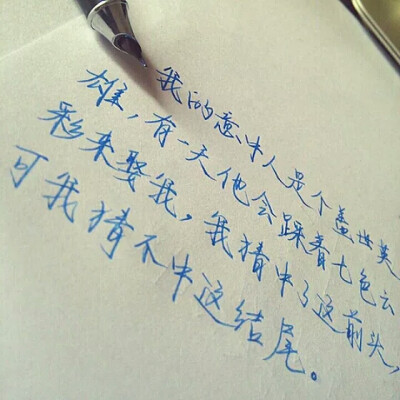 我的意中人是个盖世英
雄，有一天他会踩着七色云
彩来娶我，我猜中了这前头，
可我猜不中这结尾。